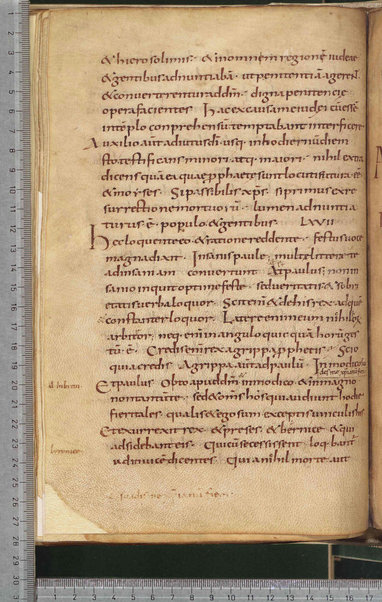 & hierosolimis · & in omnem regionē iudeae
& gentibus adnuntiabā · ut penitentiā ager&
& converterentur ad dm̄ · digna penitenciȩ
opera facientes · Hac ex causa me iudei cū essē
in tēplo conprehensū temptabant interficere
Auxilio aut adiutus dī · usq: in hodiernū diem
sto testificans minori atq: maiori · nihil extra
dicens quā ea quae pphaetȩ sunt locuti futura eē
& moyses · Si passibilis xps̄ · si primus ex re
surrectione mortuorū · lumen adnuntia
turus ē · populo & gentibus · LXVII
Hȩc loquente eo & rationē reddente · festus voce
magna dixit · Insanis paule · multȩ litterȩ te
ad insaniam convertunt · At paulus · non in
sanio inquit optime feste · sed veritatis & sobri
etatis verba loquor · Scit enī & de his rex ad quē
constanter loquor · Latere enim eum nihil eorū
arbitror · neq: enī in angulo quicquā horū ges
tū ē · Credis enī rex agrippa pphetis · Scio
quia credis · Agrippa aut ad paulū · In modico
Et paulus · Obto apud dm̄ in modico & in magno
non tantū te · sed & om̄s hos qui audiunt hodie
fieri tales · qualis & ego sum exceptis vinculis his
Et exurrexit rex · & preses · & bernice · & qui
adsidebant eis · Qui cū secessissent · loq̄bant
ad invicē dicentes · Quia nihil morte aut